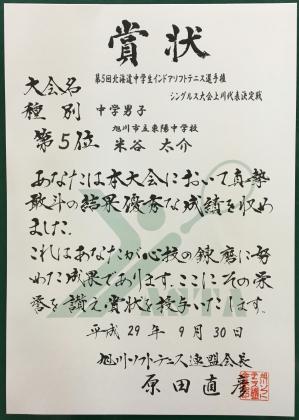 賞状
大会名 第5回北海道中学生インドアソフトテニス選手権
シングルス大会上川代表決定戦
種別 中学男子
第5位 旭川市立東陽中学校
米谷 太介
あなたは本大会において真摯
敢斗の結果優秀な成績を収め
ました.
これはあなたが心技の錬磨に努
めた成果であります.ここにその栄
誉を讃え.賞状を授与いたします.
平成29年9月30日
旭川ソフトテニス連盟会長
原田直彦